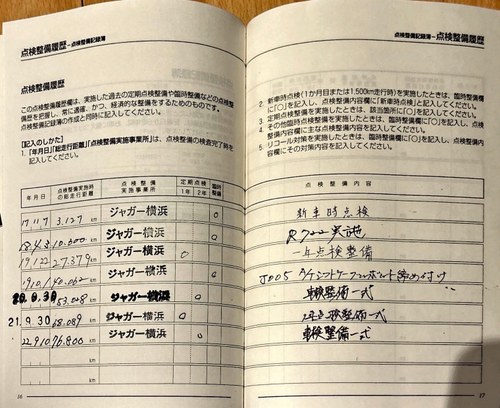 点検整備履歴－点検整備記録簿
点検整備履歴
この点検整備履歴欄は、実施した過去の定期点検整備や臨時整備などの点検
備歴を把握し、常に適確、かつ、経済的な整備をするためのものです。
点検整備記録簿の作成と同時に記入してください。
[記入のしかた]
1.「年月日」「総走行距離」「点検整備実施事業所」は、点検整備の検査完了時を
記入してください。
年月日 点検整備実施時の総走行距離 点検整備実施事業所 定期点検 1年 2年 臨時整備
17 11 7 3.127 km ジャガー横浜 ○
18.4.3 10.600 km ジャガー横浜 ○
19.1.22 27.379 km ジャガー横浜 ○
19.10.1 40.062 km ジャガー横浜 ○
20.9.30 53.028 km ジャガー横浜 ○
21.9.30 68.089 km ジャガー横浜 ○
22.9.10 76.800 km ジャガー横浜 ○
km
km
16
点検整備記録簿－点検整備履歴
2. 新車時点検(1か月目または1,500km走行時)を実施したときは、臨時整備欄
に「○」を記入し、点検整備内容欄に「新車時点検」と記入してください。
3. 定期点検整備を実施したときは、該当箇所に「○」を記入してください。
4. その他臨時点検整備を実施したときは、臨時整備欄に「○」を記入し、点検整
備内容欄に主な点検整備内容を記入してください。
5. リコール対策を実施したときは、臨時整備欄に「○」を記入し、点検整備内容
欄にその対策内容を記入してください。
点検整備内容
新車時点検
実施
一年点検整備
J005
車検整備一式
点検整備一式
車検整備一式
17